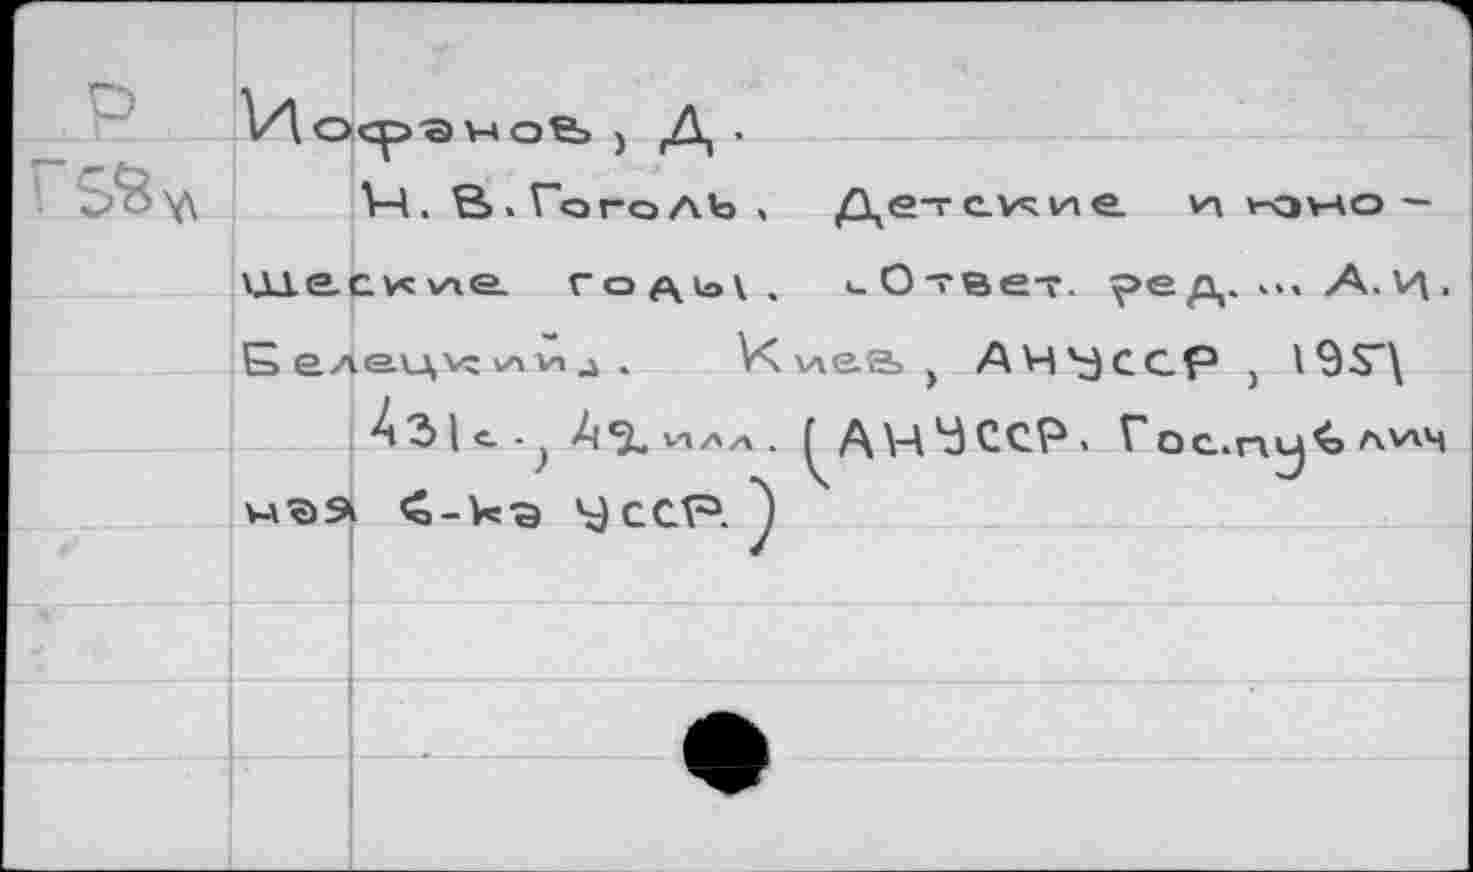 Р
Г58и
Иофанов, Д.
Н. В. Гоголь, Детские и юно-
шеские годы. Ответ. ред. ... А. И.
Белецкий. Киев, АНУССР, 1951
431 с., илл. (АНУССР. Гос. публич
ная б-ка УССР.)